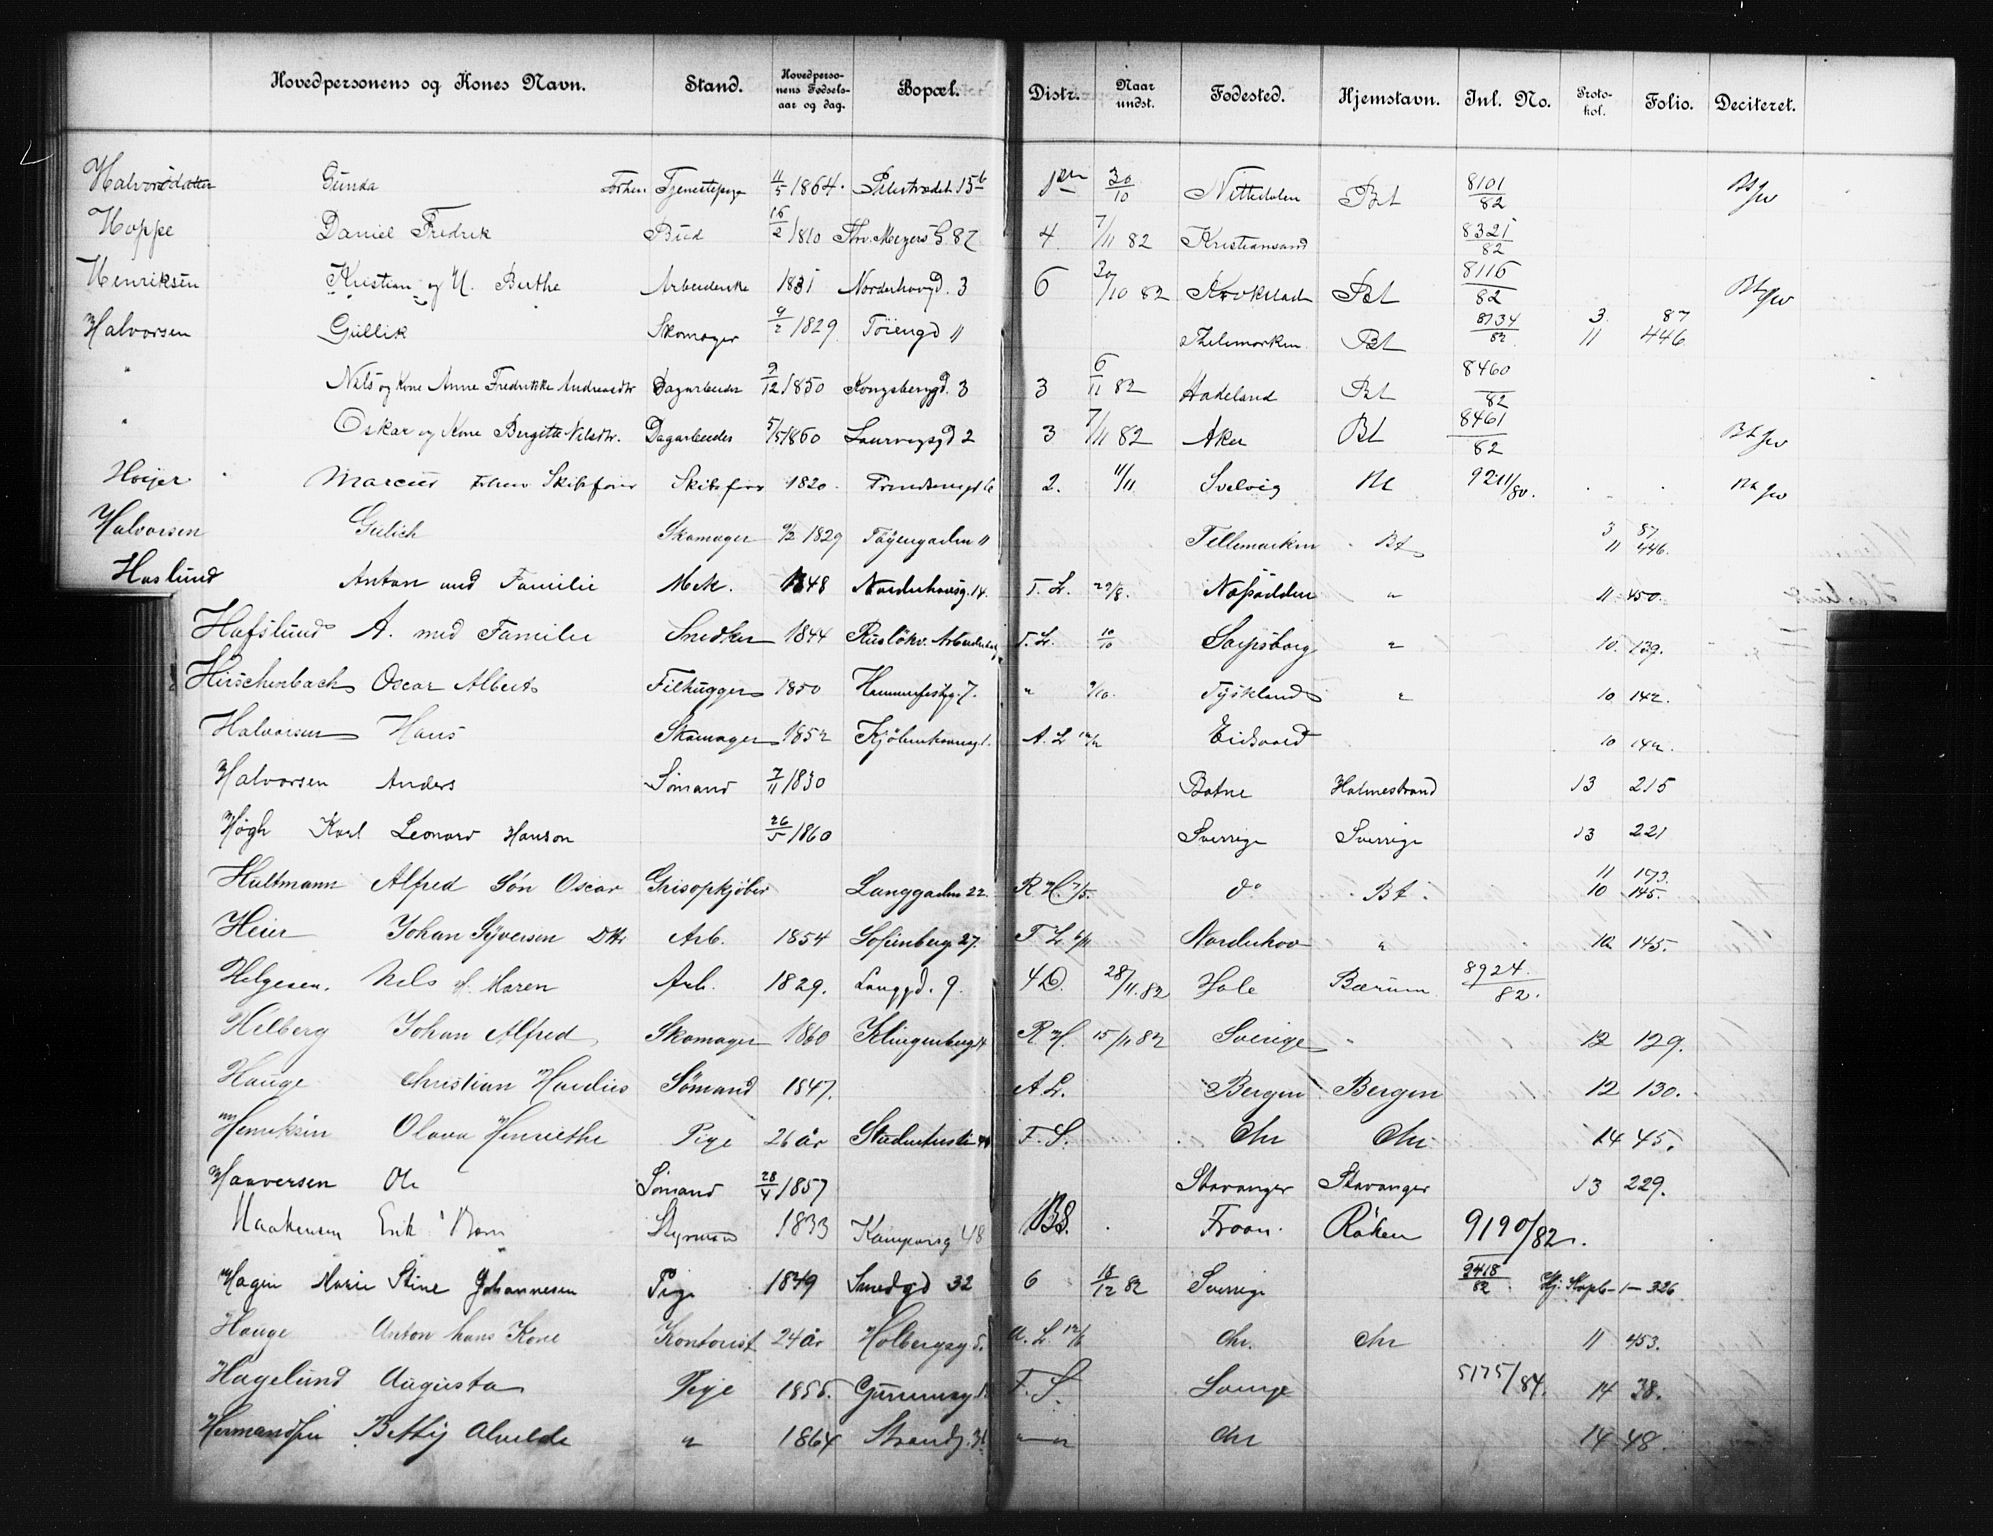 Hovedpersonens og Kones Navn. Stand. Hovedperso-nens Fødsels-aar og dag. Bopæl. Distr. Naar undst. Fødested. Hjemstavn. Inl. No. Proto-kol. Folio. Deciteret.
Halvorsdatter Gunda Tjenestepige 11/5 1864. Pilestrædet 15 b 30/10 Nittedalen Bt 8101/82
Hoppe Daniel Fredrik Bud 16/2 1810 Thv. Meyers G. 87 4 7/11 82 Kristiansand 8321/82
Henriksen Kristian og H. Berthe Arbeiderske 1831 Norderhovgd. 3 6 30/10 82 Krokstad Bt 8116/82
Halvorsen Gullik Skomager 9/2 1829 Töiengd 11 Thelemarken Bt 8734/82 3 11 87 446
" Nils og Kone Anne Fredrikke Andreasdtr Dagarbeider 9/12 1850 Kongsberggd. 3 3 6/11 82 Hadeland Bt 8460/82
" Oskar og Kone Bergitte Nilsdtr. Dagarbeider 5/5 1860 Laurvigsgd 2 3 7/11 82 Aker Bt 8461/82
Höijer Marcus Skibsfører 1820 2. 11/11 Svelvig 9211/80.
Halvorsen Gulich Skomager 9/2 1829 Töyengaden 11 Tellemarken Bt 3 11 87 446.
Haslund Anton med Familie Mek. 1848 Norderhovsg. 14. F. L. 29/8. Næsodden " 11 450.
Hafslund A. med Familie Snedker 1844 Ruslökv. F. L. 10/10 Sarpsborg " 10. 139.
Hirschenbach Oscar Albert Filhugger 1850 Hammerfestg. 7. " 9/10. Tyskland " 10 142.
Halvorsen Hans Skomager 1852 A. L. Eidsvold 10 142.
Halvorsen Anders Sömand 7/11 1830 Botne Holmestrand 13 215
Høgh Karl Leonard Hanson 26/5 1860 Sverrige Sverrige 13 221
Hultmann Alfred Søn Oscar Grisopkjøber Langgaden 22. R H. 7/5. do Bt. 11 10 173. 145.
Heier Johan Syversen Dttr Arb. 1854 Sofienberg 27. F L. 6/11 Norderhov " 10 145.
Helgesen. Nils H. Maren Arb. 1829. Langgd. 9. 4 D. 28/11. 82 Hole Bærum 8924/82.
Helberg Johan Alfred Skomager 1860 Klingenberg 4 R H. 15/11 82 Sverige " 12 129.
Hauge Christian Sömand 1847. A L. Bergen Bergen 12 130.
Henriksen Olava Henriethe Pige 26 år F. S. Chr Chr 14 45.
Haaversen Ole Sömand 28/4 1857 Stavanger Stavanger 13 229.
Haakensen Erik Styrmand 1833 Kampensg 48 BS. Froen. Röken 9190/82.
Hagen Marie Stine Johannesen Pige 1849 Smedgd 32 6 18/12 82 Sverrige 9418/82 1 – 326
Hauge Anton hans Kone Kontorist 24 år Holbergsg 5. A. L. 12/6 Chr. Chr 11 453.
Hagelund Augusta Pige 1856. F. S. 5175/84. 14 38.
Hermandsen Betty Alvelde " 1864 Strandg. 36 " Chr 14 48.